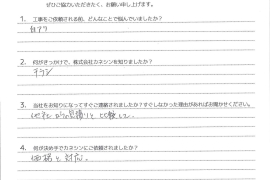 ぜひご協力いただきたく、お願い申し上げます。
1. 工事をご依頼される前、どんなことで悩んでいましたか?
2. 何がきっかけで、株式会社カネシンを知りましたか?
チラシ
3. 当社をお知りになってすぐ連絡されましたか?すぐしなかった理由があればお聞かせください。
他社からの見積りと比較して、
4. 何が決め手でカネシンにご依頼されましたか?
価格と対応。